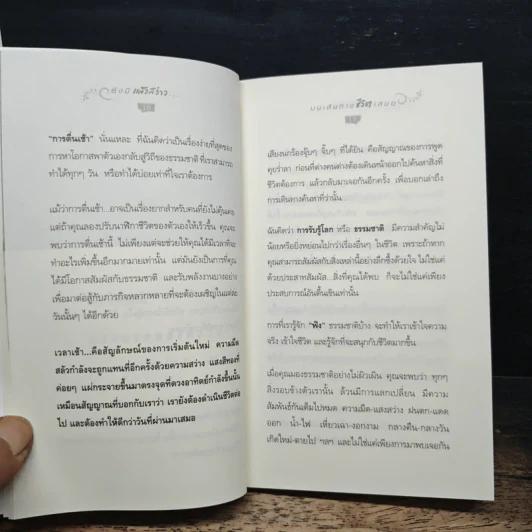 ยังมี แสงสว่าง
"การตื่นเช้า" นั่นแหละ ที่ฉันคิดว่าเป็นเรื่องง่ายที่สุดของ
การหาโอกาสพาตัวเองกลับสู่วิถีของธรรมชาติ ที่เราสามารถ
ทำได้ทุกๆ วัน หรือทำได้บ่อยเท่าที่ใจเราต้องการ
แม้ว่าการตื่นเช้า...อาจเป็นเรื่องยากสำหรับคนที่ยังไม่คุ้นเคย
แต่ถ้าคุณลองปรับนาฬิกาชีวิตของตัวเองให้เร็วขึ้น คุณจะ
พบว่าการตื่นเช้านี้ ไม่เพียงแต่จะช่วยให้คุณได้มีเวลาที่จะ
ทำอะไรเพิ่มขึ้นอีกมากมายเท่านั้น แต่มันยังเป็นการที่คุณ
ได้มีโอกาสสัมผัสกับธรรมชาติ และรับพลังงานบางอย่าง
เพื่อมาต่อสู้กับภารกิจหลากหลายที่จะต้องเผชิญในแต่ละ
วันนั้นๆ ได้อีกด้วย
เวลาเช้า...คือสัญลักษณ์ของการเริ่มต้นใหม่ ความมืด
สลัวกำลังจะถูกแทนที่อีกครั้งด้วยความสว่าง แสงสีทองที่
ค่อยๆ แผ่กระจายขึ้นมาตรงจุดที่ดวงอาทิตย์กำลังขึ้นนั้น
เหมือนสัญญาณที่บอกกับเราว่า เรายังต้องดำเนินชีวิตต่อ
ไป และต้องทำให้ดีกว่าวันที่ผ่านมาเสมอ
บนเส้นทาง ชีวิต เสมอ
เสียงนกร้องจุ๊บๆ จิ๊บๆ ที่ได้ยิน คือสัญญาณของการพูด
คุยร่ำลา ก่อนที่ต่างคนต่างต้องเดินหน้าออกไปค้นหาสิ่งที่
ชีวิตต้องการ แล้วกลับมาเจอกันอีกครั้ง เพื่อบอกเล่าถึง
การเดินทางค้นหาที่ว่านั้น
ฉันคิดว่า การรับรู้โลก หรือ ธรรมชาติ มีความสำคัญไม่
น้อยหรือยิ่งหย่อนไปกว่าเรื่องอื่นๆ ในชีวิต เพราะถ้าหาก
คุณสามารถสัมผัสกับสิ่งเหล่านี้อย่างลึกซึ้งด้วยใจ ไม่ใช่แค่
ด้วยประสาทสัมผัส...สิ่งที่คุณได้พบ ก็จะไม่ใช่แค่เพียง
ประสบการณ์อันตื้นเขินเท่านั้น
การที่เรารู้จัก "ฟัง" ธรรมชาติบ้าง จะทำให้เราเข้าใจความ
จริง เข้าใจชีวิต และรู้จักที่จะสนุกกับชีวิตมากขึ้น
เมื่อคุณมองธรรมชาติอย่างไม่ผิวเผิน คุณจะพบว่า ทุกๆ
สิ่งรอบข้างตัวเรานั้น ล้วนมีการแลกเปลี่ยน มีความ
สัมพันธ์กันเต็มไปหมด ความมืด-แสงสว่าง ฝนตก-แดด
ออก น้ำ-ไฟ เหี่ยวเฉา-งอกงาม กลางคืน-กลางวัน
เกิดใหม่-ตายไป ฯลฯ และไม่ใช่แค่เพียงการมาพบเจอกัน